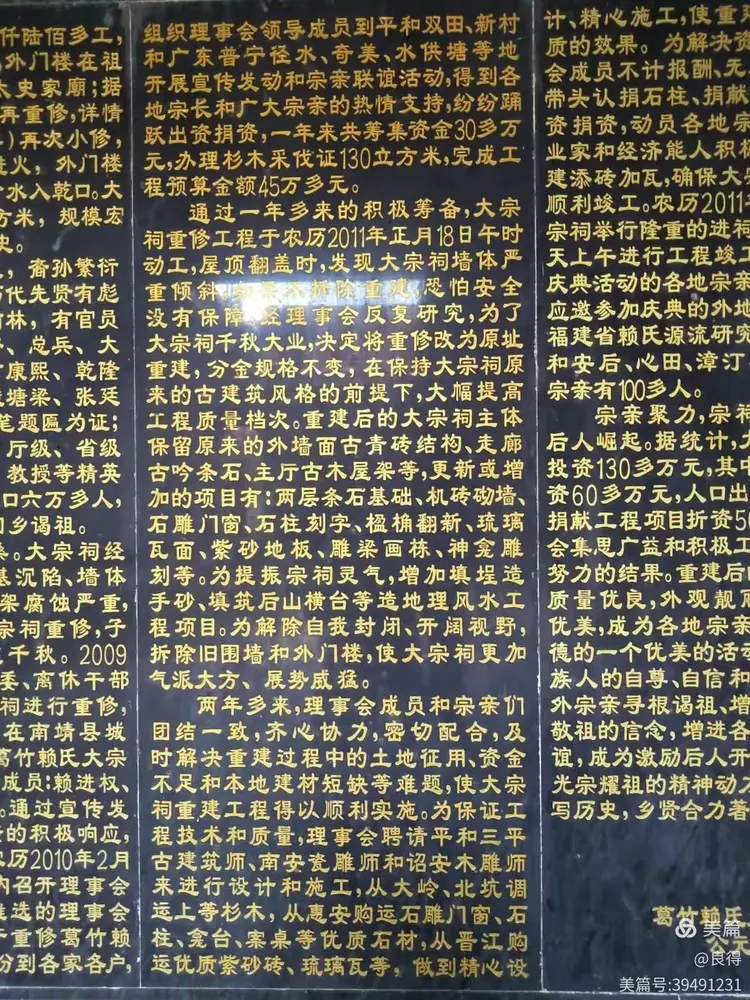 仟陆佰多工,
外门楼在祖
太史家庙;据
再重修,详情
)再次小修,
火,外门楼
水入乾口。大
方米,规模宏
史。
,裔孙繁衍
代先贤有彪
林,有官员
、总兵、大
康熙、乾隆
塘梁、张廷
笔题匾为证;
厅级、省级
教授等精英
口六万多人,
回乡谒祖。
。大宗祠经
基沉陷、墙体
架腐蚀严重,
宗祠重修,子
千秋。2009
委、离休干部
祠进行重修,
在南靖县城
葛竹赖氏大宗
成员:赖进权、
。通过宣传发
的积极响应,
农历2010年2月
内召开理事会
推选的理事会
于重修葛竹赖
份到各家各户,
组织理事会领导成员到平和双田、新村
和广东普宁径水、奇美、水供塘等地
开展宣传发动和宗亲联谊活动,得到各
地宗长和广大宗亲的热情支持,纷纷踊
跃出资捐资,一年来共筹集资金30多万
元,办理杉木采伐证130立方米,完成工
程预算金额45万多元。
通过一年多来的积极筹备,大宗
祠重修工程于农历2011年正月18日午时
动工,屋顶翻盖时,发现大宗祠墙体严
重倾斜,如果不拆除重建,恐怕安全
没有保障,经理事会反复研究,为了
大宗祠千秋大业,决定将重修改为原址
重建,分金规格不变,在保持大宗祠原
来的古建筑风格的前提下,大幅提高
工程质量档次。重建后的大宗祠主体
保留原来的外墙面古青砖结构、走廊
古吟条石、主厅古木屋架等,更新或增
加的项目有:两层条石基础、机砖砌墙、
石雕门窗、石柱刻字、楹桷翻新、琉璃
瓦面、紫砂地板、雕梁画栋、神龛雕
刻等。为提振宗祠灵气,增加填埕造
手砂、填筑后山横台等造地理风水工
程项目。为解除自我封闭、开阔视野,
拆除旧围墙和外门楼,使大宗祠更加
气派大方、展势威猛。
两年多来,理事会成员和宗亲们
团结一致,齐心协力,密切配合,及
时解决重建过程中的土地征用、资金
不足和本地建材短缺等难题,使大宗
祠重建工程得以顺利实施。为保证工
程技术和质量,理事会聘请平和三平
古建筑师、南安瓷雕师和诏安木雕师
来进行设计和施工,从大岭、北坑调
运上等杉木,从惠安购运石雕门窗、石
柱、龛台、案桌等优质石材,从晋江购
运优质紫砂砖、琉璃瓦等,做到精心设
计、精心施工,使重
质的效果。为解决资
会成员不计报酬、无
带头认捐石柱、捐献
资捐资,动员各地宗
业家和经济能人积极
建添砖加瓦,确保大
顺利竣工。农历2011
宗祠举行隆重的进祠
天上午进行工程竣工
庆典活动的各地宗亲
应邀参加庆典的外地
福建省赖氏源流研究
和安后、心田、漳汀
宗亲有100多人。
宗亲聚力,宗祠
后人崛起。据统计,
投资130多万元,其中
资60多万元,人口出
捐献工程项目折资5
会集思广益和积极工
努力的结果。重建后
质量优良,外观靓丽
优美,成为各地宗亲
德的一个优美的活动
族人的自尊、自信和
外宗亲寻根谒祖、增
敬祖的信念,增进各
谊,成为激励后人开
光宗耀祖的精神动力
写历史,乡贤合力著
葛竹赖氏
公元
美篇
@良得
美篇号:39491231